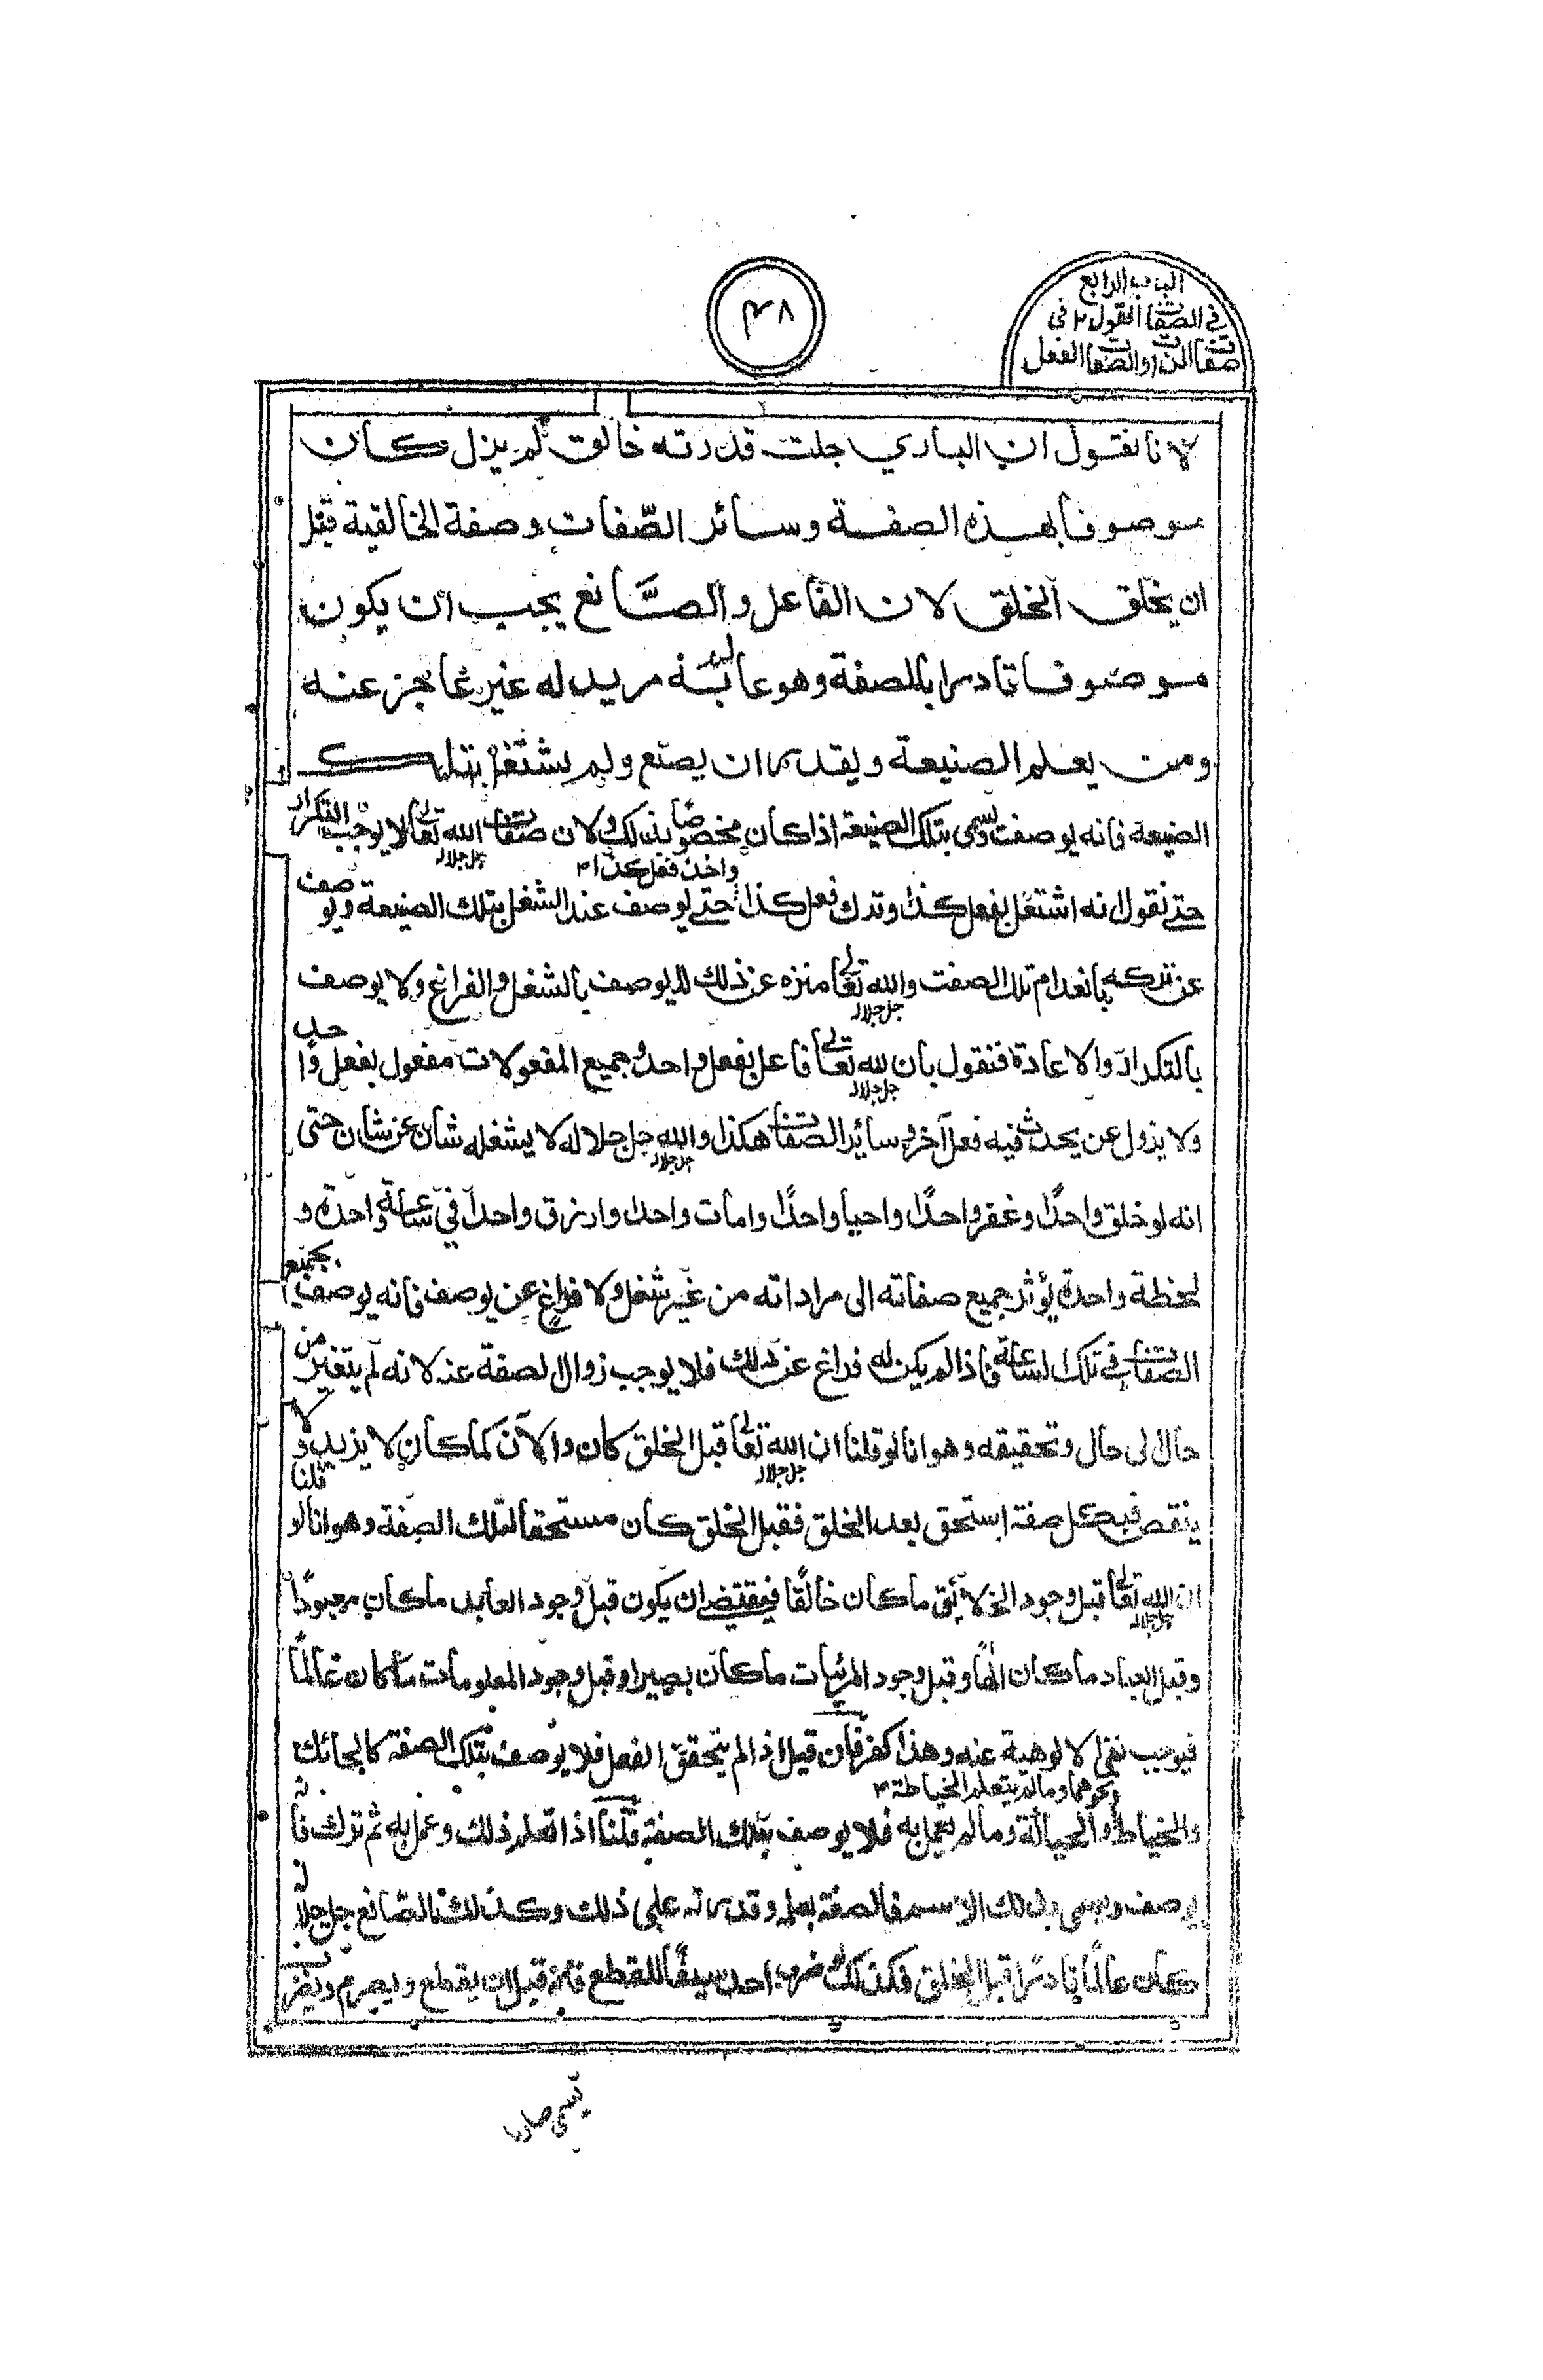 الباب الرابع
في الصفات القول ٢ في
صفات الذات والصفات الفعل
٤٨
لانا نقول ان الباري جلت قدرته خالق لم يزل كان
موصوفا بهذه الصفة وسائر الصّفات وصفة الخالقية قبل
ان يخلق الخلق لان الفاعل والصّانع يجب ان يكون
موصوفا قادرا بالصفة وهو عالم بانه مريد له غير عاجز عنه
ومن يعلم الصنيعة ويقدر ان يصنع ولم يشتغل بتلك
الصنيعة فانه يوصف ويسمى بتلك الصنيعة اذا كان مخصوصا بذلك ولان صفات الله تعالى لا يوجب التكرار
جل جلاله
واخذ فعل كذا ٣
حتى نقول انه اشتغل بفعل كذا وترك فعل كذا حتى يوصف عند الشغل بتلك الصنيعة ويوصف
عن تركه بانعدام تلك الصفت والله تعالى منزه عن ذلك لا يوصف بالشغل والفراغ ولا يوصف
جل جلاله
بالتكرار والاعادة فنقول بان لله تعالى فاعل بفعل واحد وجميع المفعولات مفعول بفعل واحد
جل جلاله
ولا يزول عن يحدث فيه فعل آخر وسائر الصفات هكذا والله جل جلاله لا يشغله شان عن شان حتى
جل جلاله
انه لو خلق واحدًا وغفر واحدًا واحيا واحدًا وامات واحدا وارزق واحدا في ساعة واحدة و
لحظة واحدة يؤثر جميع صفاته الى مراداته من غير شغل ولا فراغ عن يوصف فانه يوصف بجميع
الصفات في تلك الساعة فاذا لم يكن له فراغ عن ذلك فلا يوجب زوال الصفة عنه لانه لم يتغير من
حال الى حال وتحقيقه وهو انا لو قلنا ان الله تعالى قبل الخلق كان والآن كما كان لا يزيد ولا
جل جلاله
ينقص فبكل صفة استحق بعد الخلق فقبل الخلق كان مستحقا لتلك الصفة وهو انا لو قلنا
ان الله تعالى قبل وجود الخلائق ما كان خالقًا فيقتضي ان يكون قبل وجود العابد ما كان معبودًا
جل جلاله
وقبل العباد ما كان الٰهًا وقبل وجود المرئيات ما كان بصيرا وقبل وجود المعلومات ما كان عالمًا
فيوجب نفي الالوهية عنه وهذا كفر فان قيل اذ الم يتحقق الفعل فلا يوصف بتلك الصفة كالحائك
ونحوهما وما لم يتعلم الخياطة ٣
والخياط والحيالة وما لم يعمل به فلا يوصف بتلك الصفة قلنا اذا تعلم ذلك وعمل به ثم ترك فانه
يوصف ويسمى بذلك الاسم فالصفة بعلمه وقدرته على ذلك وكذلك الصّانع جل جلاله
كان عالمًا قادرًا قبل الخلق فكذلك ضرب احد سيفًا للقطع فانه قبل ان يقطع ويصرم ويفرز
يسمى صارما